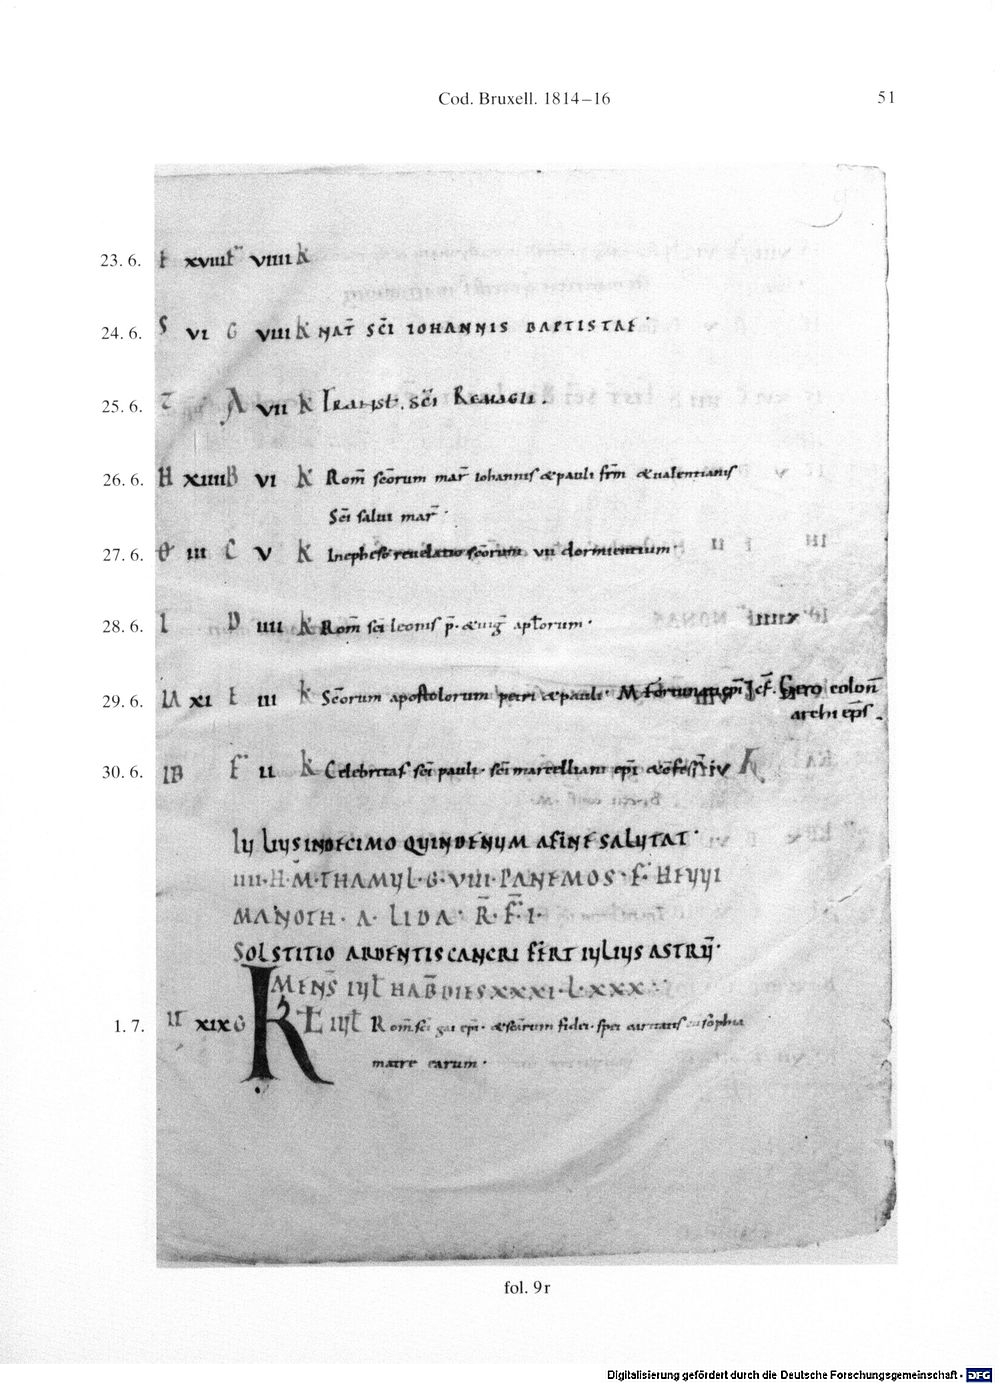 Cod. Bruxell. 1814–16 51
23. 6. F xviiii F viiii K
24. 6. S vi G viii K NAT̄ SC̄I IOHANNIS BAPTISTAE·
25. 6. T A vii K Transt. sc̄i Remagli.
26. 6. H xiiii B vi K Rom̄ sc̄orum mar̄ iohannis &pauli fr̄m &ualentianis
Sc̄i salui mar̄·
27. 6. Θ iii C v K Inepheso reuelatio sc̄orum vii dormientium·
28. 6. I D iiii K Rom̄ sc̄i leonis p̄·&uig̅ apl̄orum·
29. 6. IA xi E iii K Sc̄orum apostolorum petri &pauli· M ep̄i Gero colon̄
archi ep̄s.
30. 6. IB F ii K Celebritas sc̄i pauli· sc̄i martelliani ep̄i
IyLIySINDECIMO QUINDENUM AFINE SALUTAT·
iiii·H·M·THAMUL·G·viii·PANEMOS·F·HEYYI
MANOTH· A· LIDA· R̄·F̄·I·
SOLSTITIO ARDENTIS CANCRI FERT IULIUS ASTRU̅·
MENS̄ IUL̄ HAB̄ DIES XXXI·L·XXX·
1. 7. xix G KL̄ IUL̄ Rom̄·sc̄i gai ep̄i· &sc̄arum fidei·spei caritatis &sophia
matre earum·
fol. 9r
Digitalisierung gefördert durch die Deutsche Forschungsgemeinschaft - DFG